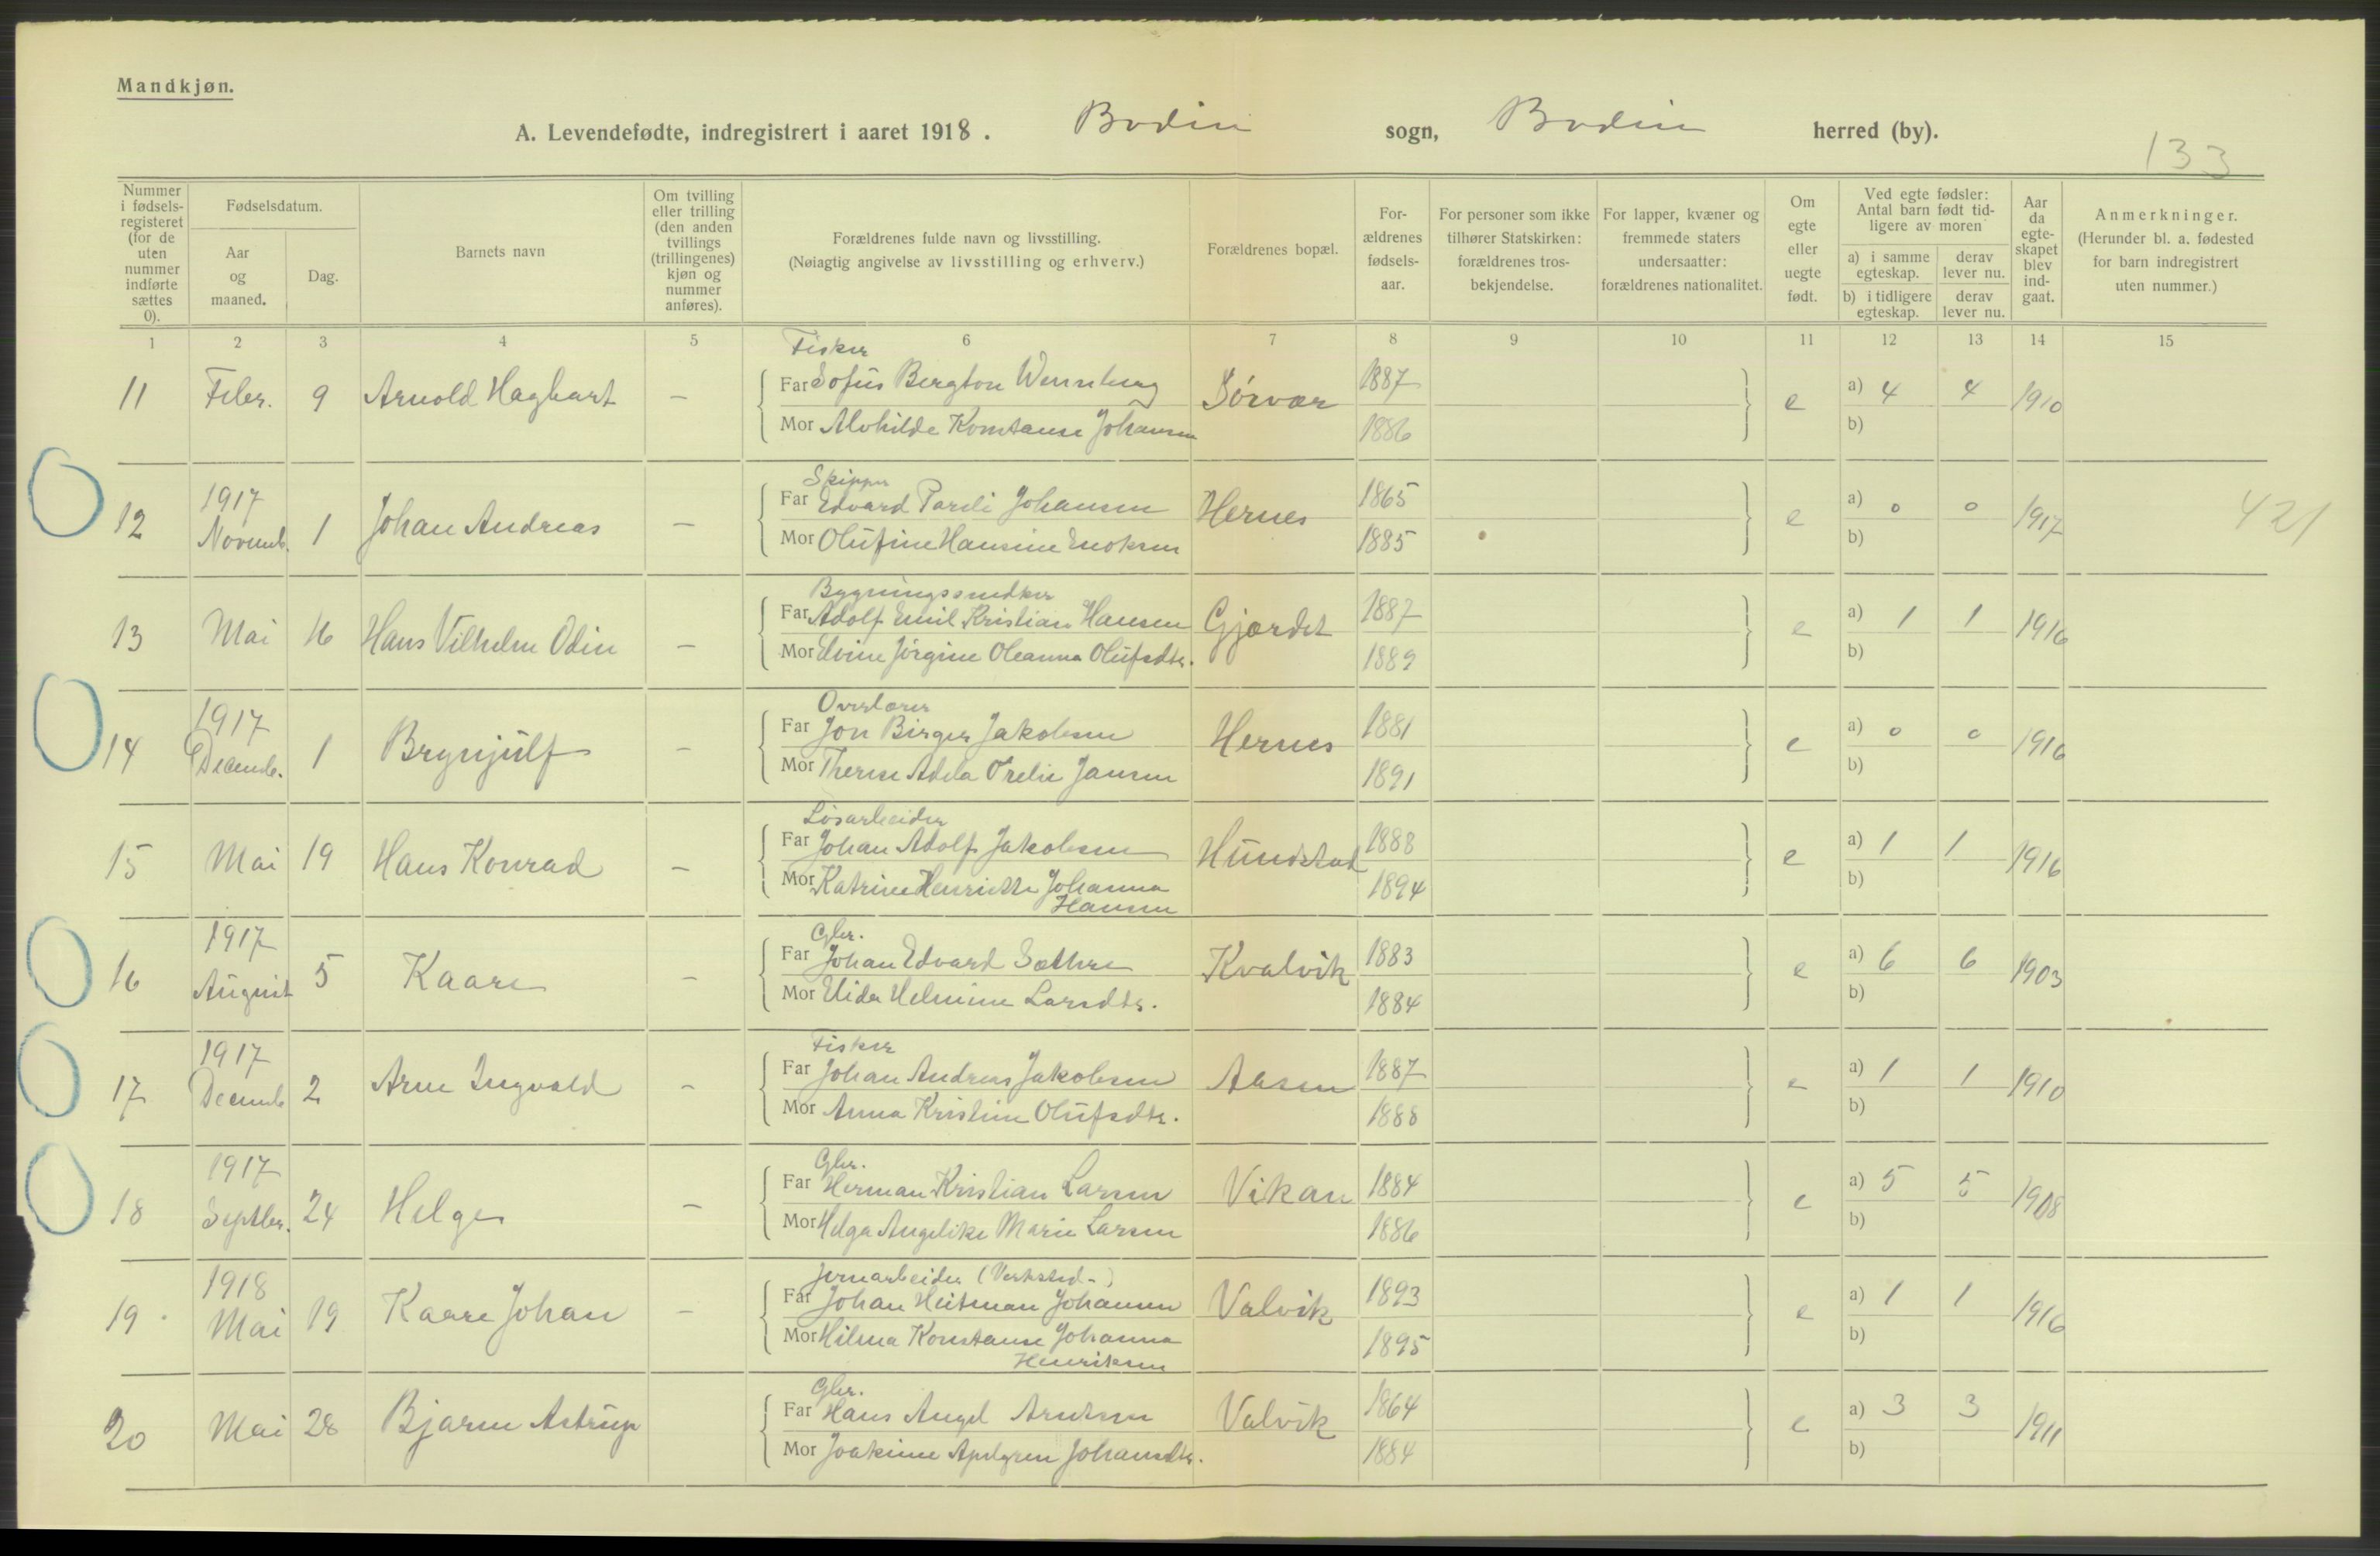 Mandkjøn.
A. Levendefødte, indregistrert i aaret 1918. Bodin sogn, Bodin herred (by).
133
Nummer i fødsels-registeret (for de uten nummer indførte sættes 0).
Fødselsdatum.
Aar og maaned.
Dag.
Barnets navn
Om tvilling eller trilling (den anden tvillings (trillingenes) kjøn og nummer anføres).
Forældrenes fulde navn og livsstilling.
(Nøiagtig angivelse av livsstilling og erhverv.)
Forældrenes bopæl.
For-ældrenes fødsels-aar.
For personer som ikke tilhører Statskirken: forældrenes tros-bekjendelse.
For lapper, kvæner og fremmede staters undersaatter: forældrenes nationalitet.
Om egte eller uegte født.
Ved egte fødsler: Antal barn født tid-ligere av moren
a) i samme egteskap.
derav lever nu.
b) i tidligere egteskap.
derav lever nu.
Aar da egte-skapet blev ind-gaat.
Anmerkninger.
(Herunder bl. a. fødested for barn indregistrert uten nummer.)
1 2 3 4 5 6 7 8 9 10 11 12 13 14 15
Fisker
11 Febr. 9 Arnold Hagbart – Far Sofus Bergton Wennberg Sørvær 1887 e a) 4 4 1910
Mor Alvhilde Konstanse Johansen 1886 b)
Skipper
12 1917 Novemb. 1 Johan Andreas – Far Edvard Pareli Johansen Hernes 1865 e a) 0 0 1917 421
Mor Olufine Hansine Enoksen 1885 b)
Bygningssnedker
13 Mai 16 Hans Vilhelm Odin – Far Adolf Emil Kristian Hansen Gjærdet 1887 e a) 1 1 1916
Mor Elvine Jørgine Oleanna Olufsdtr. 1889 b)
Overlærer
14 1917 Decemb. 1 Brynjulf – Far Jon Birger Jakobsen Hernes 1881 e a) 0 0 1916
Mor Therese Adela Orelie Jansen 1891 b)
Løsarbeider
15 Mai 19 Hans Konrad – Far Johan Adolf Jakobsen Hundstad 1888 e a) 1 1 1916
Mor Katrine Henriette Johanna 1894 b)
Hansen
Gbr.
16 1917 August 5 Kaare – Far Johan Edvard Sæthre Kvalvik 1883 e a) 6 6 1903
Mor Elida Helmine Larsdtr. 1884 b)
Fisker
17 1917 Decemb 2 Arne Ingvald – Far Johan Andreas Jakobsen Aasen 1887 e a) 1 1 1910
Mor Anna Kristine Olufsdtr. 1888 b)
Gbr.
18 1917 Septbr. 24 Helge – Far Herman Kristian Larsen Vikan 1884 e a) 5 5 1908
Mor Helga Angelike Marie Larsen 1886 b)
Jernarbeider (Verksted-)
19 1918 Mai 19 Kaare Johan – Far Johan Heitman Johansen Valvik 1893 e a) 1 1 1916
Mor Hilma Konstanse Johanna 1895 b)
Henriksen
Gbr.
20 Mai 28 Bjarne Astrup Far Hans Angel Arntsen Valvik 1864 e a) 3 3 1911
Mor Joakime Apelgren Johansdtr. 1884 b)